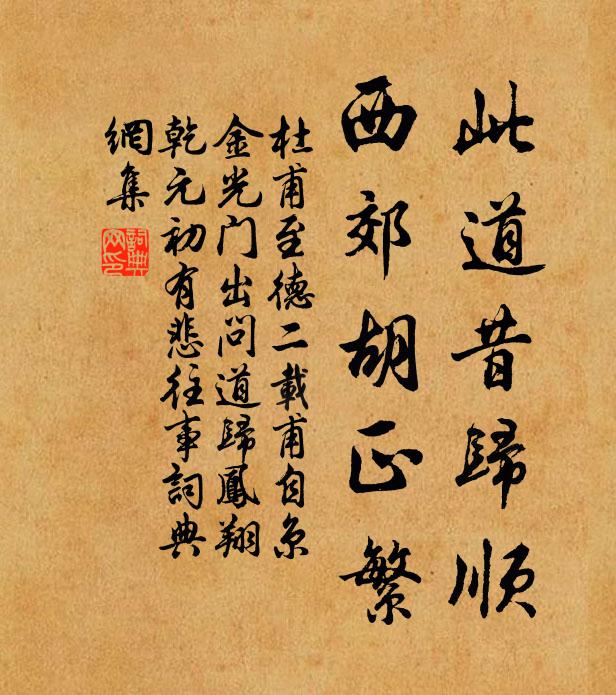 此道昔歸順
西郊胡正繁
杜甫至德二載甫自京
金光门出問道歸鳳翔
乾元初有悲往事詞典
網集
詞典
网印